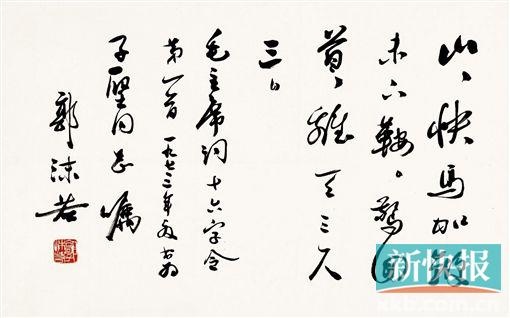 山、快馬加鞭
未下鞍。驚回
首、離天三尺
三。
毛主席詞十六字令
第一首 一九七三年
同志囑
郭沫若
新快报
xkb.com.cn